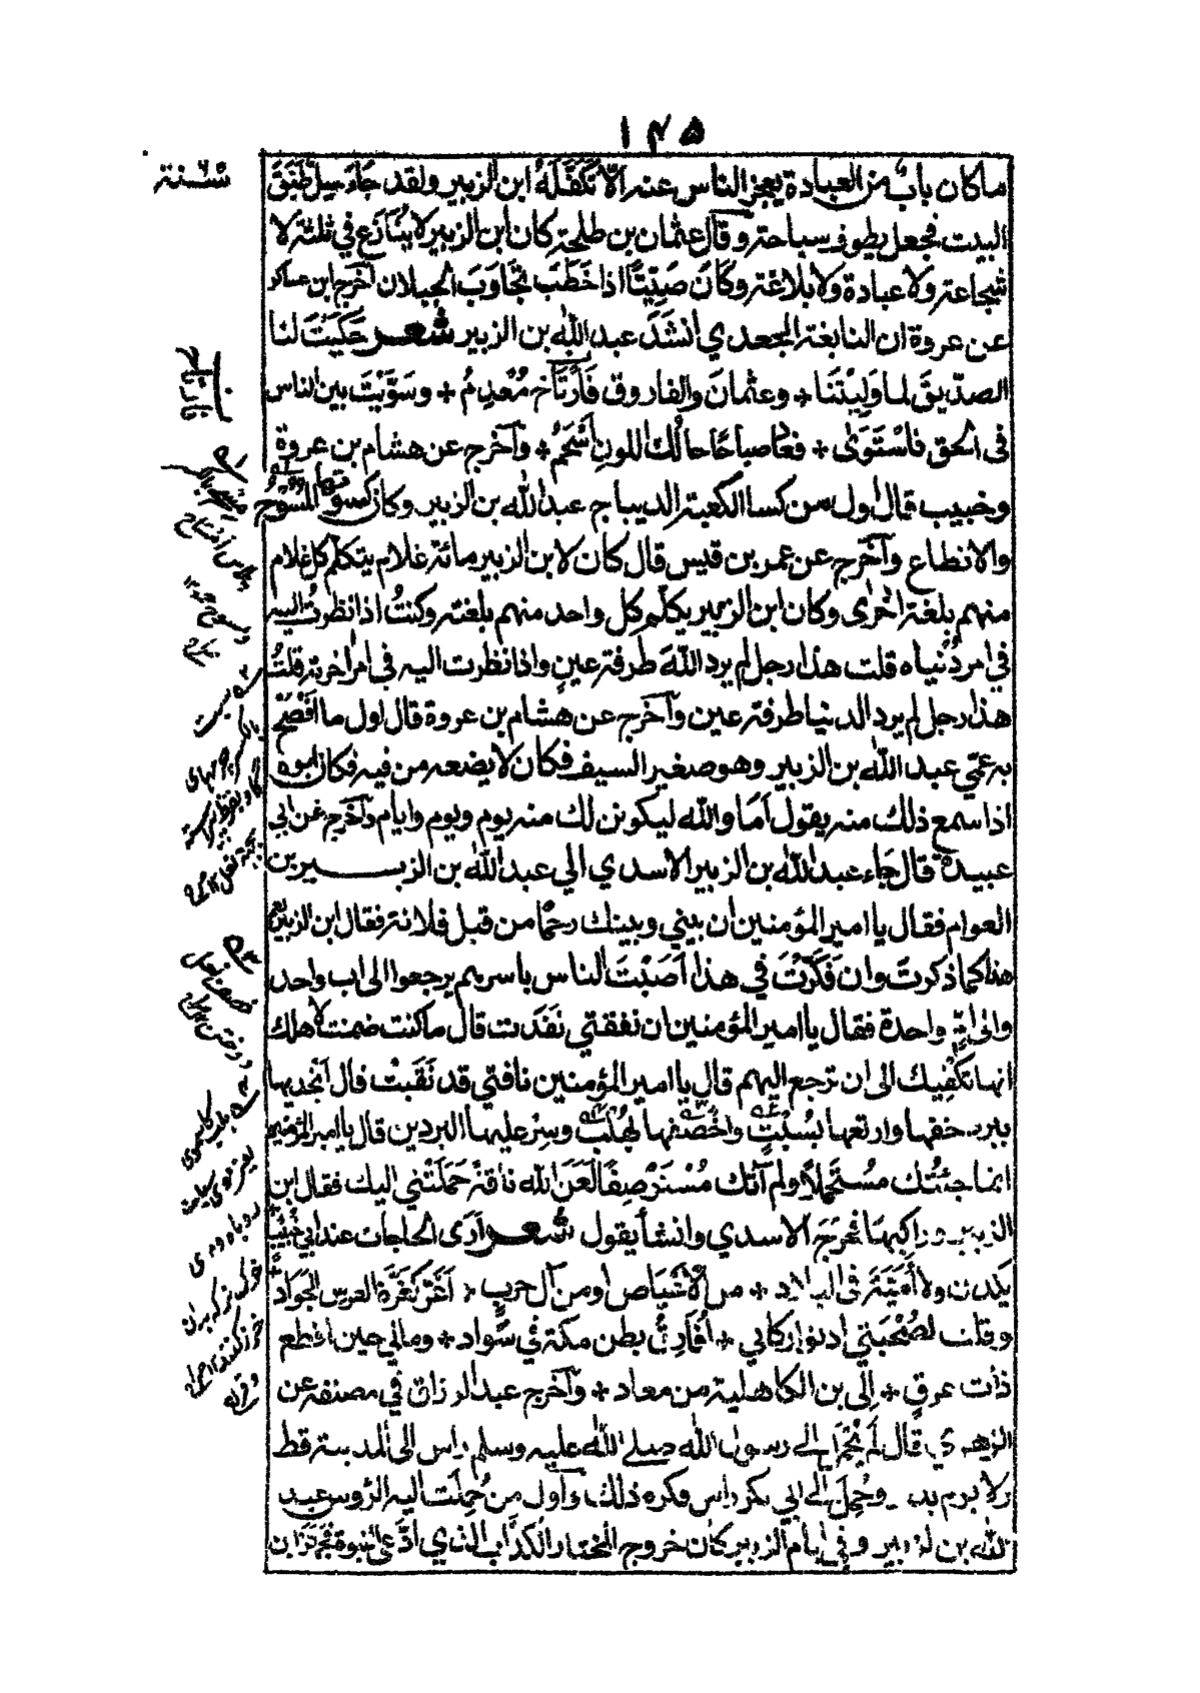 ١٤٥
سنة
ما كان باب من العبادة يعجز الناس عنه الا تكفله ابن الزبير ولقد جاء سيل طبق
البيت فجعل يطوف سباحة وقال عثمان بن طلحة كان ابن الزبير لا ينازع في ثلثة لا
شجاعة ولا عبادة ولا بلاغة وكان صيتا اذا خطب تجاوب الجبلان اخرج ابن عساكر
عن عروة ان النابغة الجعدي انشد عبد الله بن الزبير شعر حكيت لنا
الصديق لما وليتنا * وعثمان والفاروق فارتاح معدم * وسويت بين الناس
فى الحق فاستوى * فعاد صباحا حالك اللون اسحم * وآخرج عن هشام بن عروة
وخبيب قال اول من كسا الكعبة الديباج عبد الله بن الزبير وكان كسوتها المسوح
والانطاع وآخرج عن عمر بن قيس قال كان لابن الزبير مائة غلام يتكلم كل غلام
منهم بلغة اخرى وكان ابن الزبير يكلم كل واحد منهم بلغته وكنت اذا نظرت اليه
في امر دنياه قلت هذا رجل لم يرد الله طرفة عين واذا نظرت اليه فى امر اخرته قلت
هذا رجل لم يرد الدنيا طرفة عين وآخرج عن هشام بن عروة قال اول ما افصح
به عمي عبد الله بن الزبير وهو صغير السيف فكان لا يضعه من فيه فكان ابوه
اذا سمع ذلك منه يقول اما والله ليكونن لك منه يوم ويوم وايام وآخرج عن ابي
عبيدة قال جاء عبد الله بن الزبير الاسدي الى عبد الله بن الزبــــير بن
العوام فقال يا امير المؤمنين ان بيني وبينك رحما من قبل فلانة فقال ابن الزبير نعم
هذا كما ذكرت وان فكرت في هذا اصبت الناس باسرهم يرجعوا الى اب واحد
والى ام واحدة فقال يا امير المؤمنين ان نفقتي نفدت قال ما كنت ضمنت لاهلك
انها تكفيك الى ان ترجع اليهم قال يا امير المؤمنين ناقتي قد نقبت قال انجد بها
ببرد خفها وارقعها بسبت واخصفها بهلب وسر عليها البردين قال يا امير المؤمنين
انما جئتك مستحملا ولم آتك مستوصفا لعن الله ناقة حملتني اليك فقال ابن
الزبير وراكبها فخرج الاسدي وانشا يقول شعر ارى الحاجات عند ابي خبيب
يكدن ولا امية فى البلاد * من الاعياص او من آل حرب * اغر كغرة الفرس الجواد
وقلت لصحبتي ادنوا ركابي * افارق بطن مكة في سواد * ومالي حين اقطع
ذات عرق * الى بن الكاهلية من معاد * وآخرج عبد الرزاق في مصنفه عن
الزهري قال لم يحمل الى رسول الله صلى الله عليه وسلم راس الى المدينة قط
ولا يوم بدر وحمل الى ابي بكر راس فكره ذلك وآول من حملت اليه الرؤس عبد
الله بن الزبير وفي ايام الزبير كان خروج المختار الكذاب الذي ادعى النبوة فجهز ابن